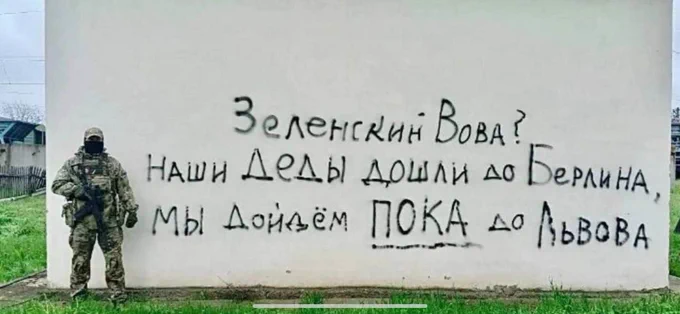 Зеленский Вова?
Наши Деды дошли до Берлина,
Мы дойдём ПОКА до Львова